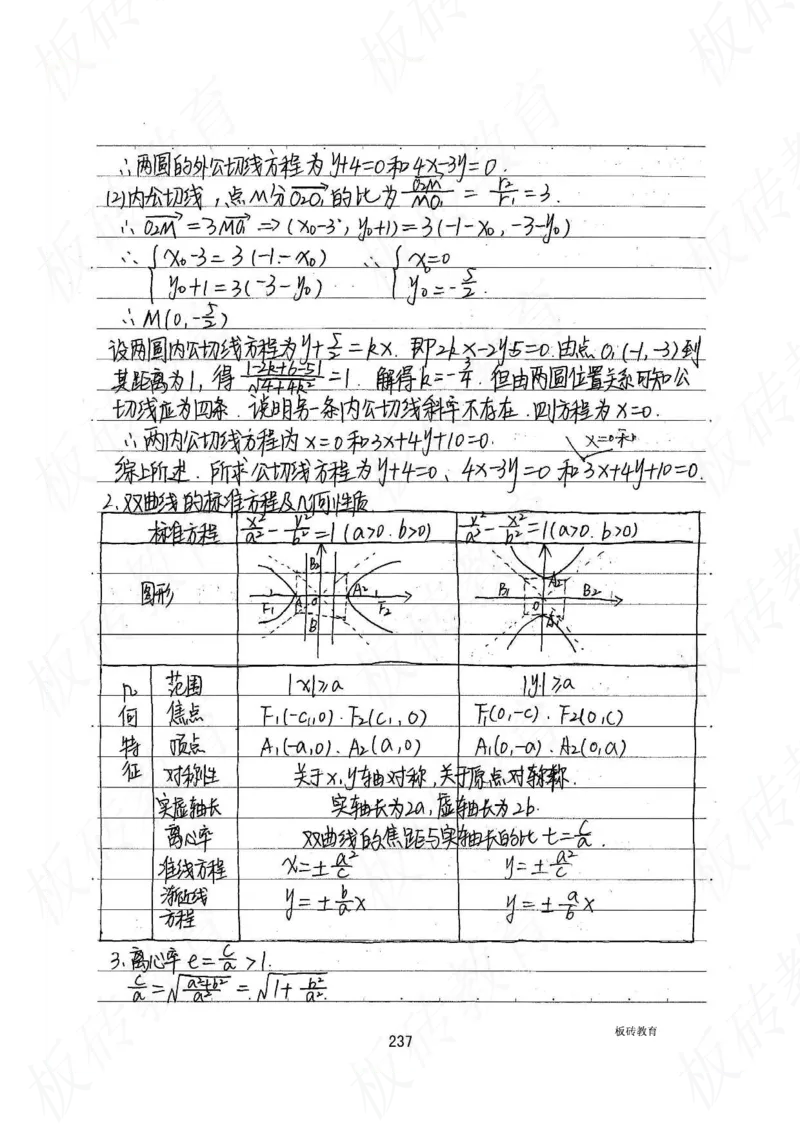 ∴两圆的外公切线方程为y+4=0和4x-3y=0.
(2)内公切线,点M分O₂O₁的比为 O₂M/MO₁ = r₂/r₁ =3.
∴ O₂M=3MO₁ ⇒ (x₀-3, y₀+1)=3(-1-x₀, -3-y₀)
∴ { x₀-3=3(-1-x₀) ∴ { x₀=0
y₀+1=3(-3-y₀) y₀=-5/2.
∴M(0,-5/2)
设两圆内公切线方程为y+5/2=kx. 即2kx-2y-5=0.由点O₁(-1,-3)到
其距离为1,得 |-2k+6-5|/√(4+4k²) =1. 解得k=-3/4. 但由两圆位置关系可知公
切线应为四条.说明另一条内公切线斜率不存在.则方程为x=0.
∴两内公切线方程为x=0和3x+4y+10=0. x=0和
综上所述.所求公切线方程为y+4=0、4x-3y=0和3x+4y+10=0.
2.双曲线的标准方程及几何性质
标准方程 x²/a² - y²/b² =1(a>0.b>0) y²/a² - x²/b² =1(a>0.b>0)
图形 B₂ A₁ O A₂ F₁ F₂ B B₁ A₂ B₂ O A₁
几何特征
范围 |x|≥a |y|≥a
焦点 F₁(-c,0).F₂(c,0) F₁(0,-c).F₂(0,c)
顶点 A₁(-a,0).A₂(a,0) A₁(0,-a).A₂(0,a)
对称性 关于x,y轴对称,关于原点对称.
实虚轴长 实轴长为2a,虚轴长为2b.
离心率 双曲线的焦距与实轴长的比 e=c/a.
准线方程 x=±a²/c y=±a²/c
渐近线方程 y=±b/a x y=±a/b x
3.离心率e=c/a>1.
c/a=√((a²+b²)/a²)=√(1+b²/a²).
237
板砖教育